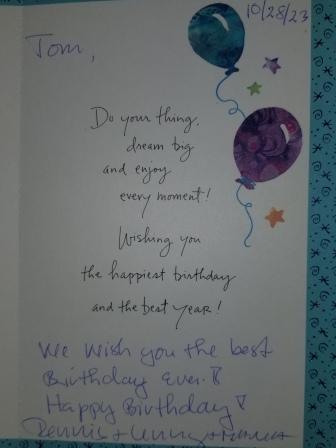 10/28/23
Tom,
Do your thing,
dream big
and enjoy
every moment!
Wishing you
the happiest birthday
and the best year!
We wish you the best
Birthday Ever!
Happy Birthday!
Dennis +